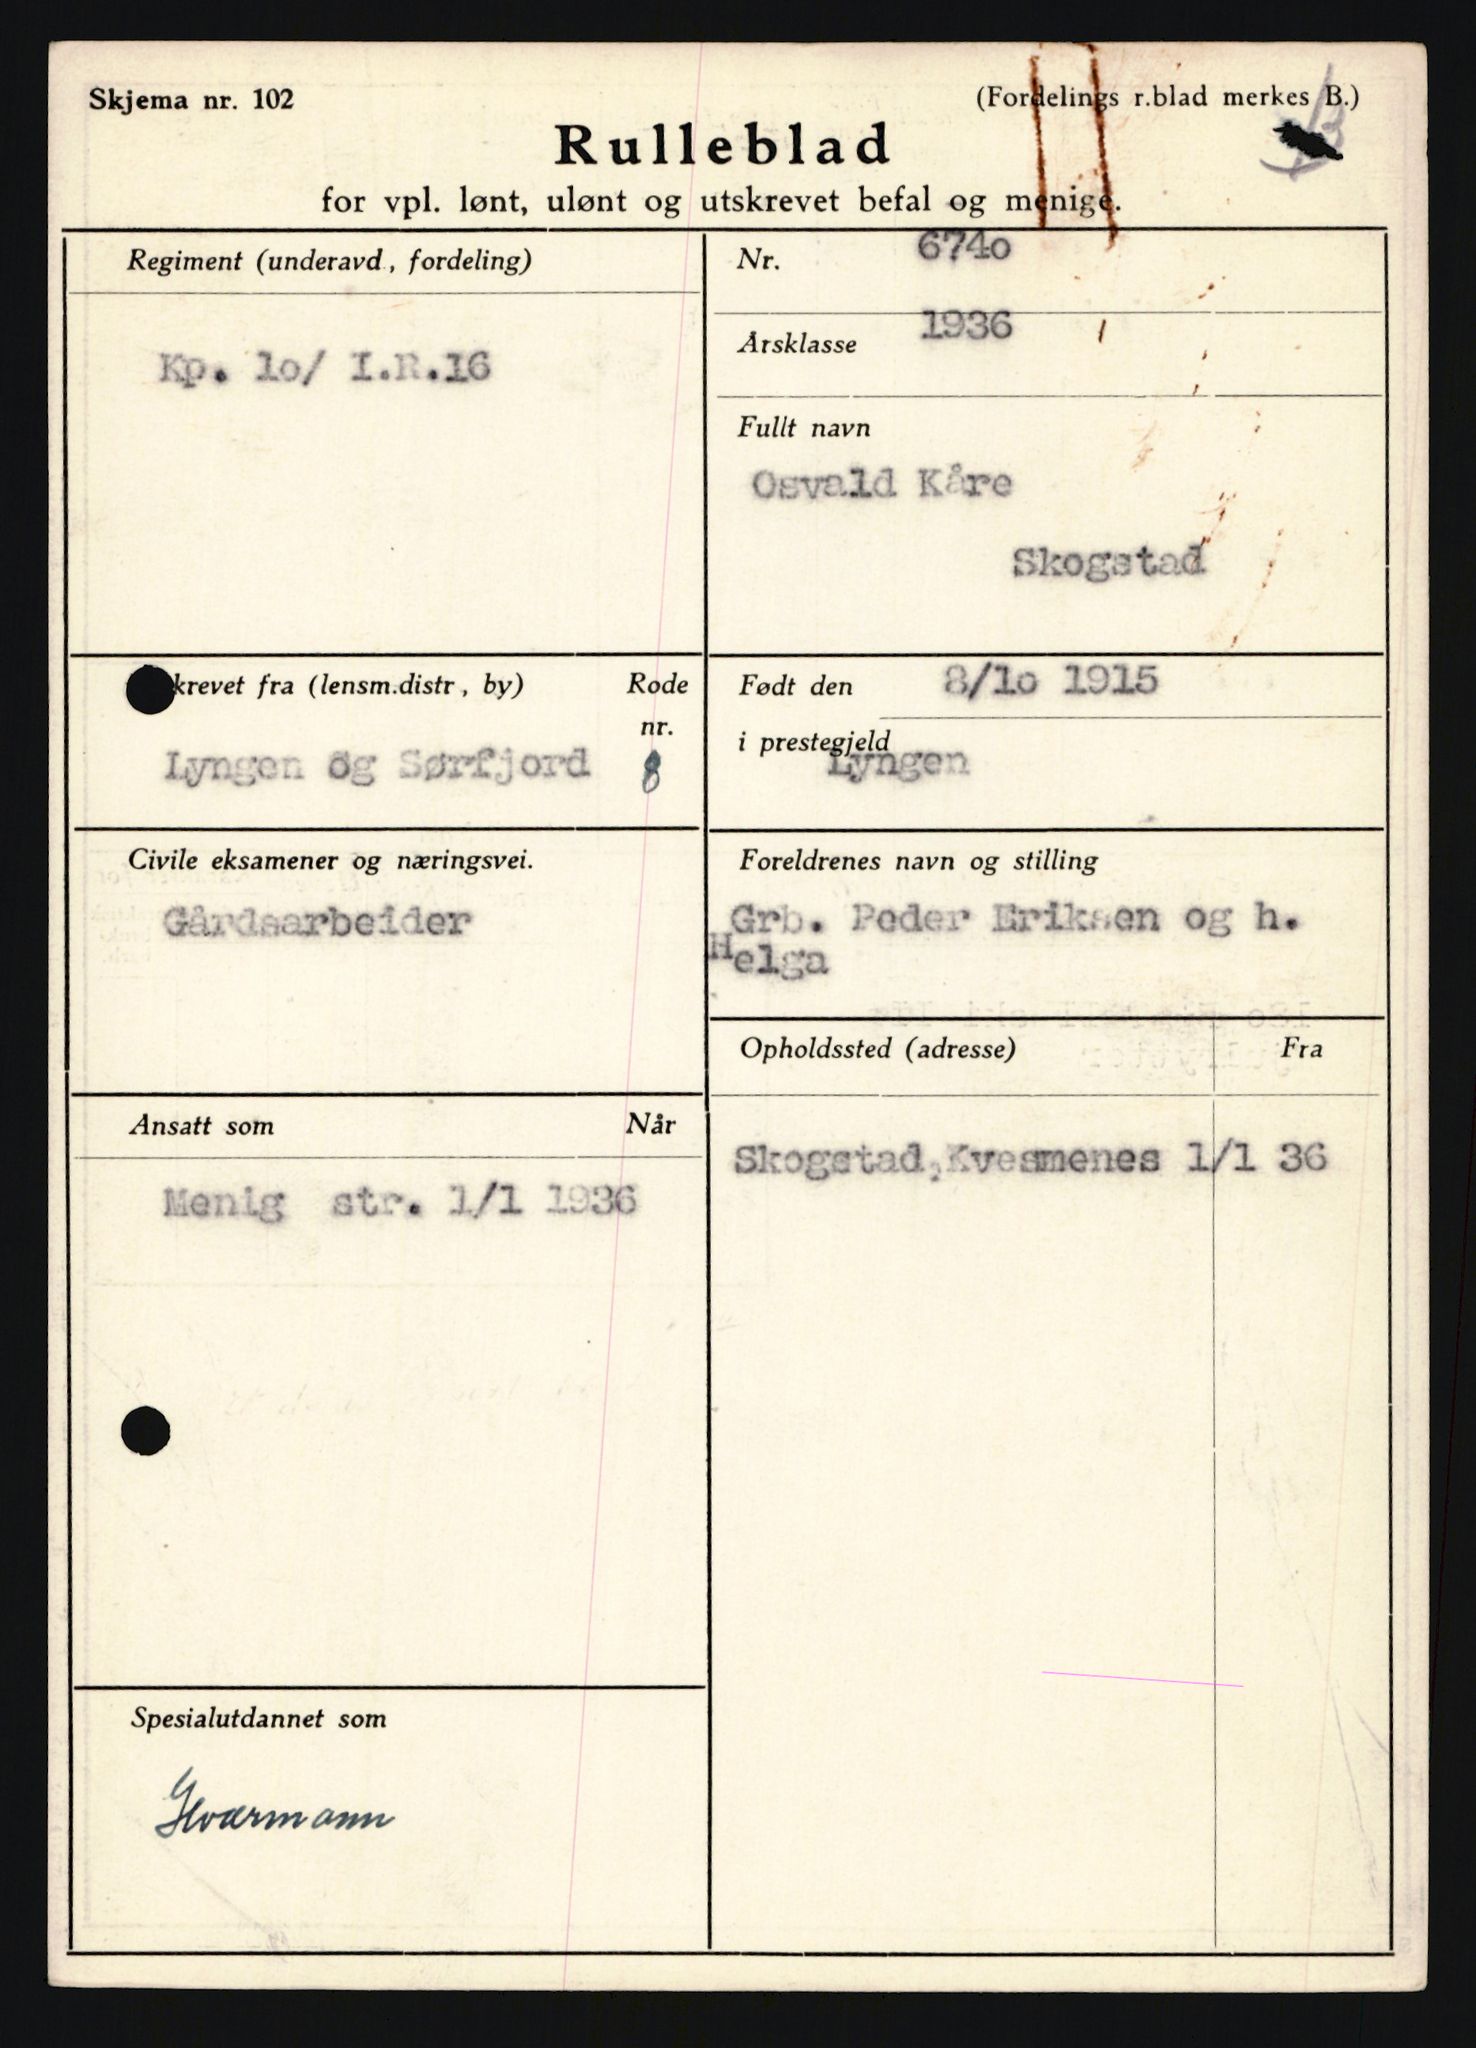 Skjema nr. 102
(Fordelings r.blad merkes B.)
B
Rulleblad
for vpl. lønt, ulønt og utskrevet befal og menige.
Regiment (underavd., fordeling)
Kp. 1o/ I.R.16
Nr. 674o
Årsklasse 1936
Fullt navn
Osvald Kåre
Skogstad
krevet fra (lensm.distr, by) Rode
nr.
Lyngen og Sørfjord 8
Født den 8/1o 1915
i prestegjeld
Lyngen
Civile eksamener og næringsvei.
Gårdsarbeider
Foreldrenes navn og stilling
Grb. Peder Eriksen og h.
Helga
Opholdssted (adresse) Fra
Skogstad, Kvesmenes 1/1 36
Ansatt som Når
Menig str. 1/1 1936
Spesialutdannet som